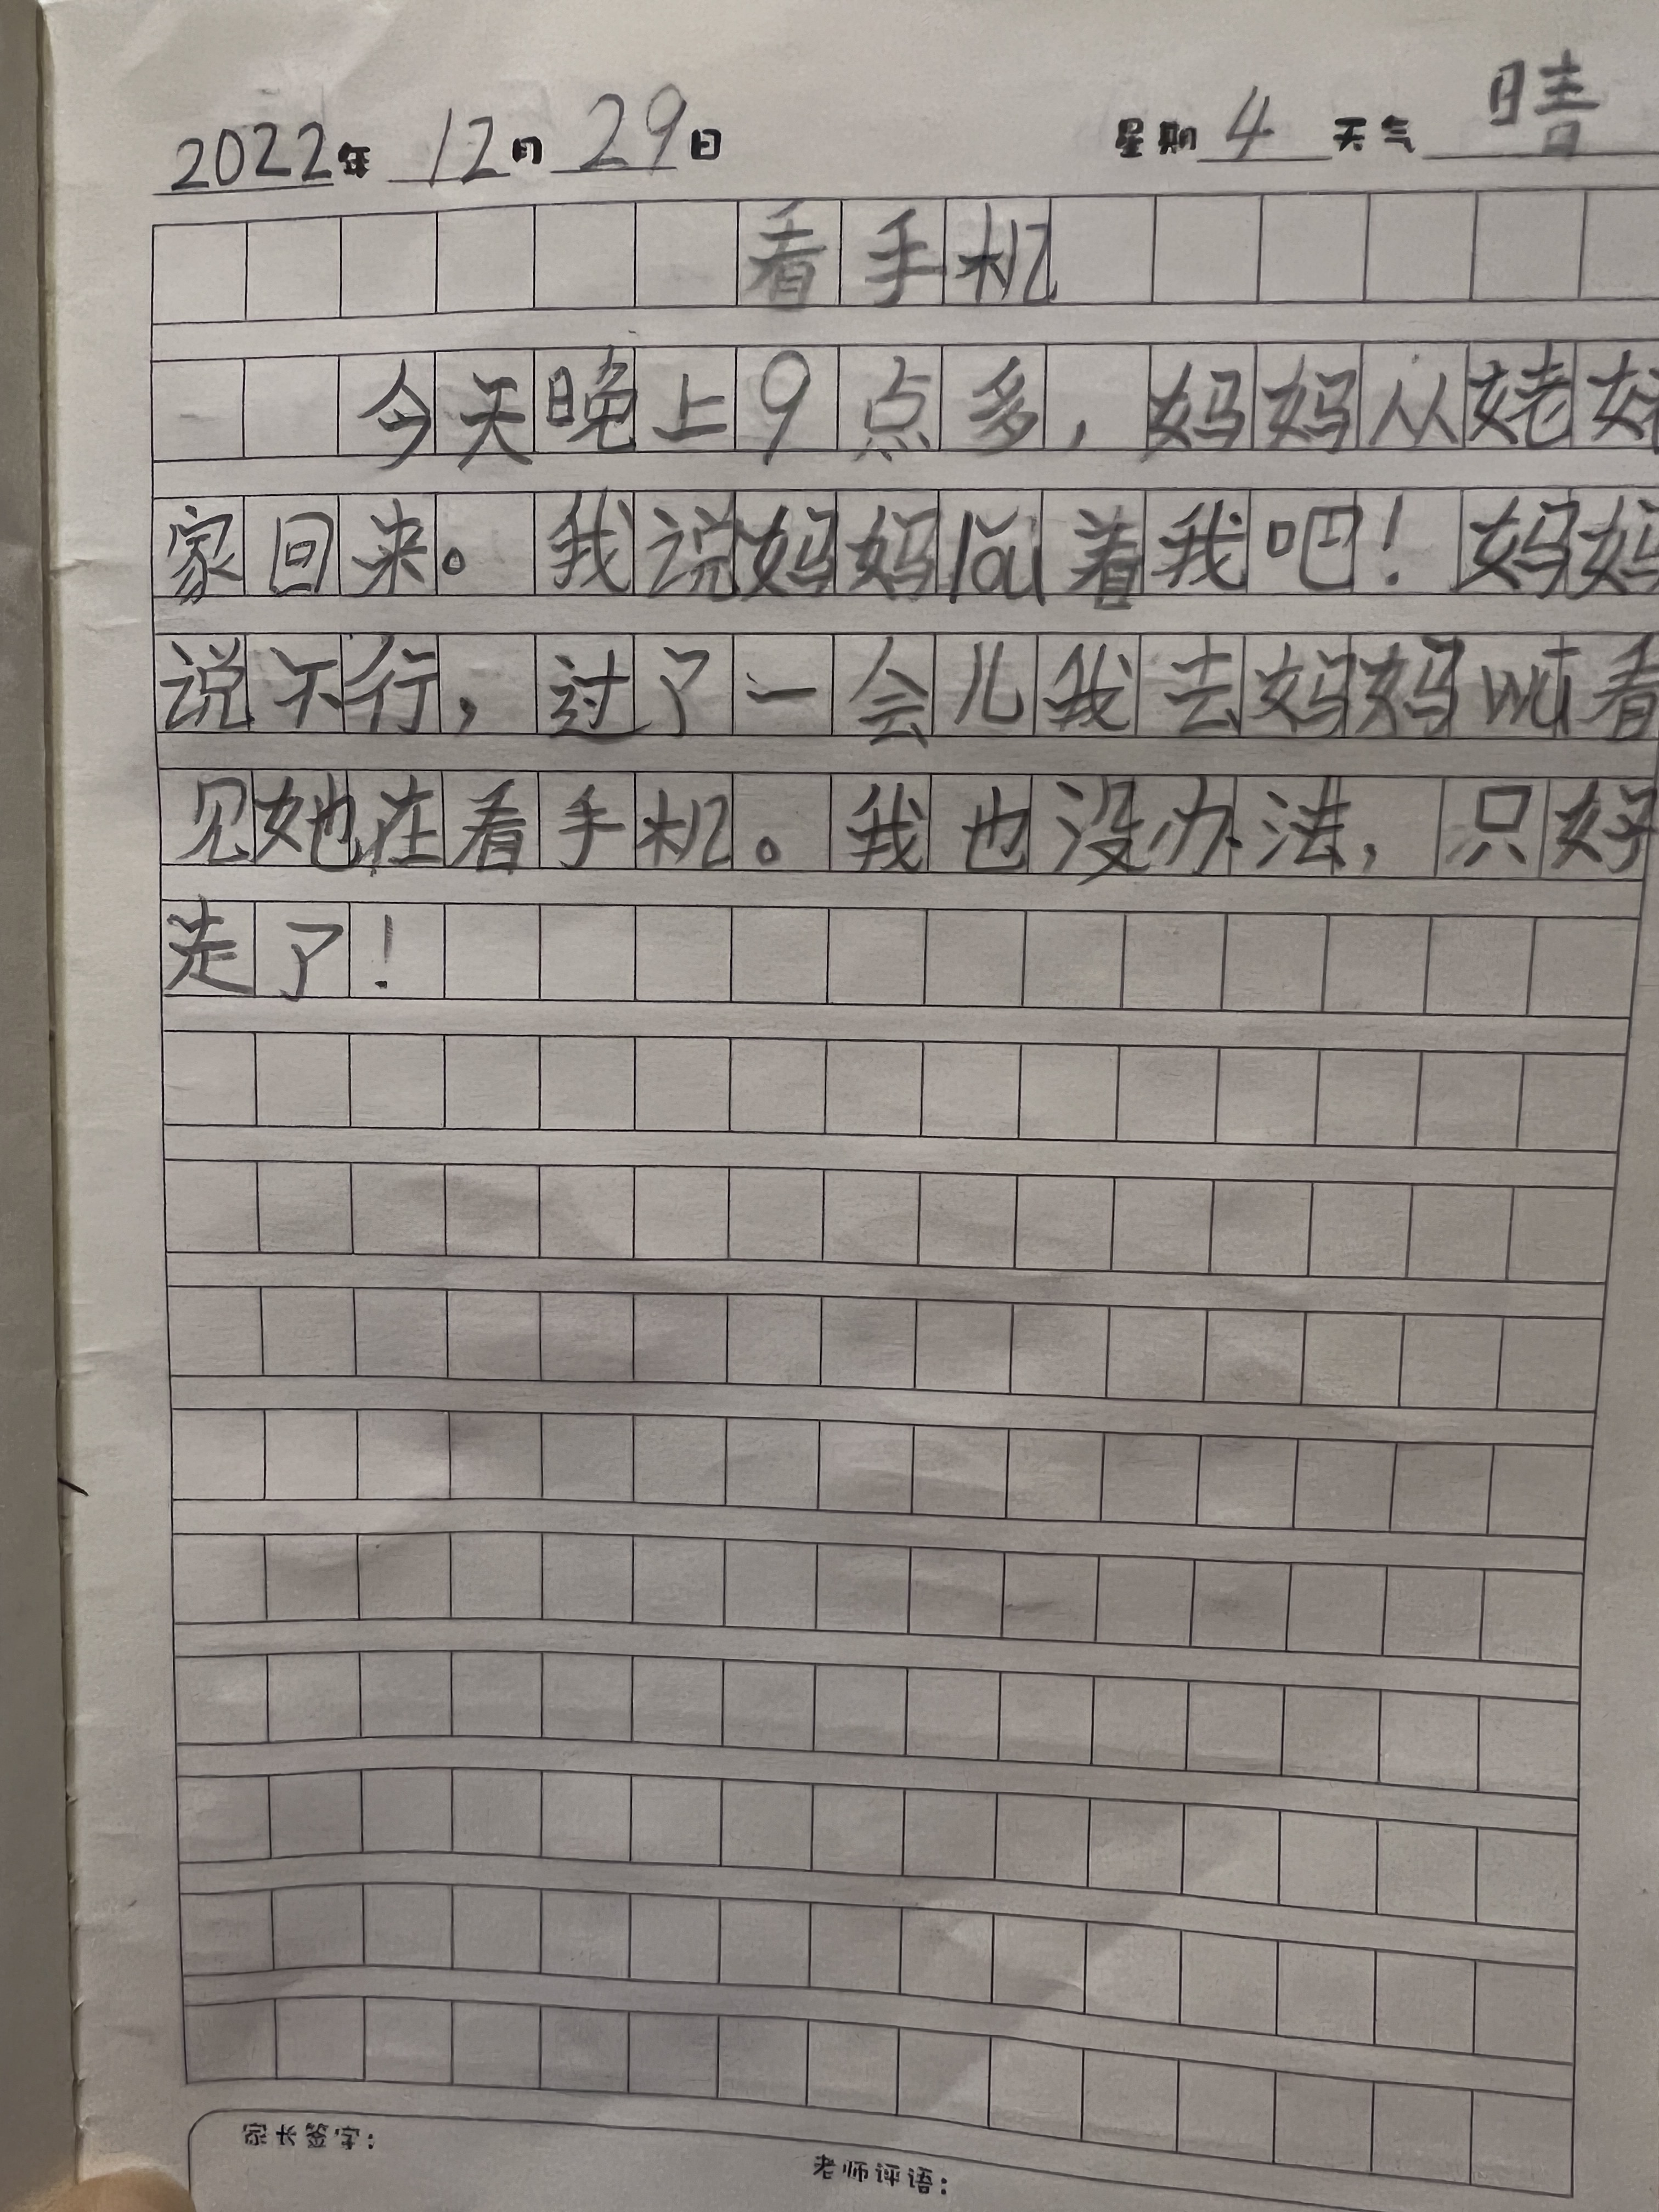 2022年 12月 29日 星期 4 天气 晴
看手机
今天晚上9点多，妈妈从姥姥
家回来。我说妈妈lǒu着我吧！妈妈
说不行，过了一会儿我去妈妈wū看
见她在看手机。我也没办法，只好
走了！
家长签字：
老师评语：